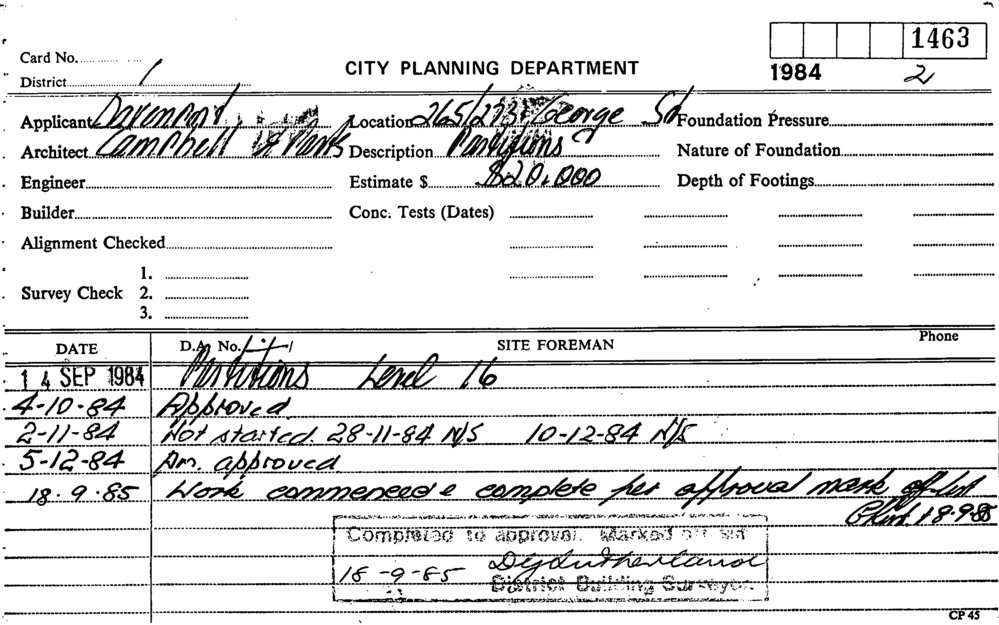 1463
Card No.
CITY PLANNING DEPARTMENT
1984 2
District 1
Applicant Davenport, Location 265/273 George St Foundation Pressure
Architect Campbell & Parts Description Partitions Nature of Foundation
Engineer Estimate $ $20,000 Depth of Footings
Builder Conc. Tests (Dates)
Alignment Checked
1.
Survey Check 2.
3.
DATE D.A. No. SITE FOREMAN Phone
14 SEP 1984 Partitions Level 16
4-10-84 Approved
2-11-84 Not started. 28-11-84 N/S 10-12-84 N/S
5-12-84 Am. approved
18.9.85 Work commenced & complete per approval mark off list
18-9-85
Completed to approval. Marked off
18-9-85 Sutherland
District Building Surveyor.
CP 45